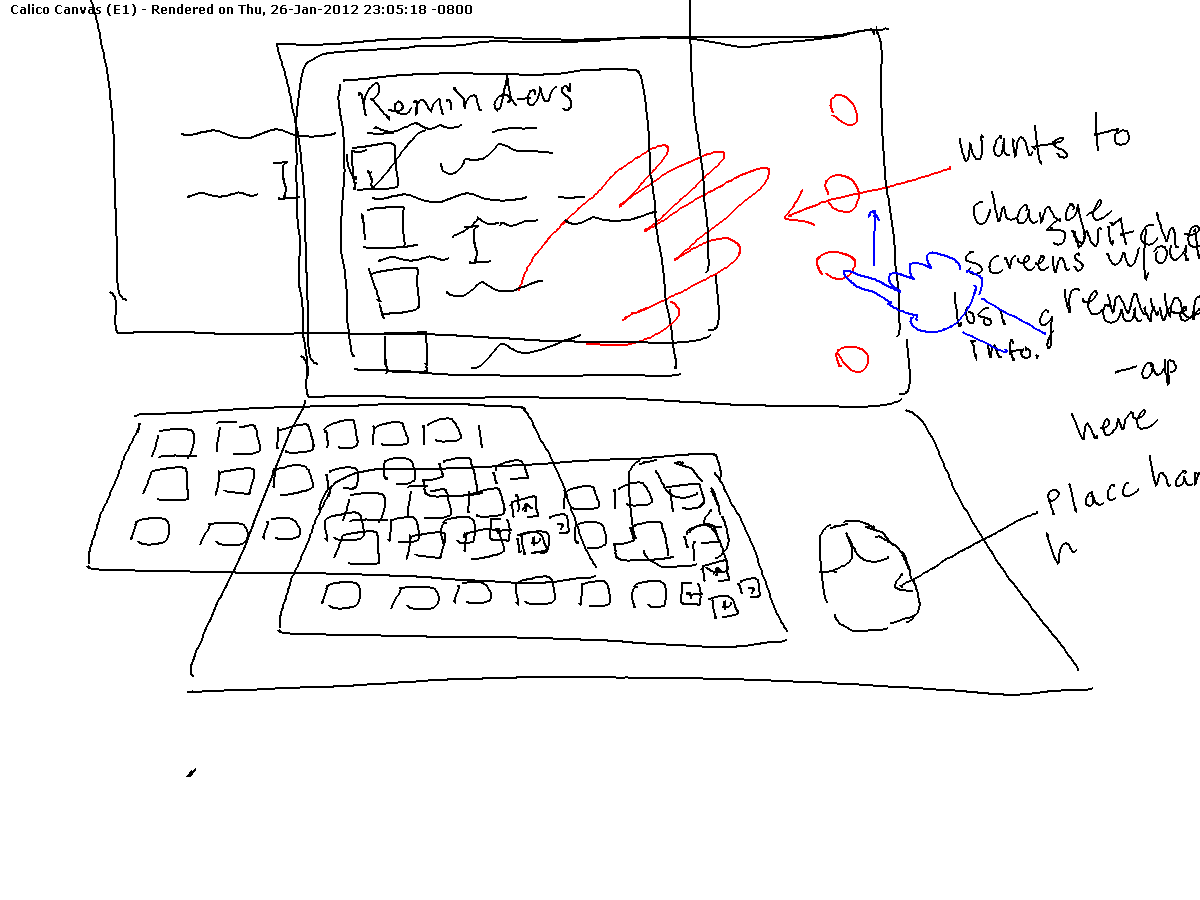 Calico Canvas (E1) - Rendered on Thu, 26-Jan-2012 23:05:18 -0800
Reminders
wants to
change
switche
screens w/out
info.
-ap
here
Place han
h